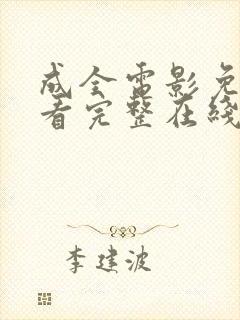 成全电影免
看完整在线
李建波